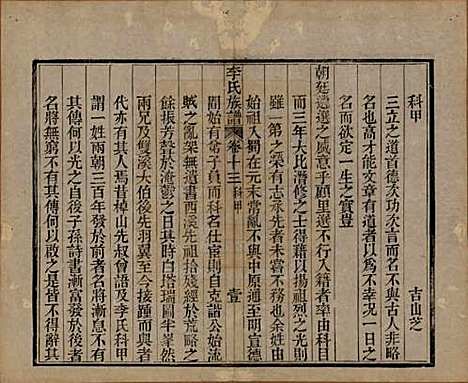 科甲
古山之
三立之道首德次功次言而名不與古人非略
名也夫高才能文章有道者以為不幸况一日之
名而欲定一生之實豈
朝廷遴選之盛意乎顧里選不行人才者率由科目
而三年大比潛修之士得藉以揚祖烈之光則
雖一第之榮有志承先者未嘗不務也余姓自
始祖入蜀在元末當亂不與中原通至明宣德
李氏族譜 卷十三 科甲 壹
間始有弟子員而科名仕宦則自克諧公始流
賊之亂架無遺書西溪先祖拾殘經於荒略之
餘振芳聲於淹鬱之日時則白塔瑞圖半峯然
兩兄及雙溪大伯後先羽翼至今接踵而起者
代亦有人焉昔棹山先叔曾譜及李氏科甲
謂一姓兩朝三百年發於前者漸息不有人焉
其傳何以之自後子孫詩書漸富發於後者
名將無窮不有其傳何以啟之是皆不得辭其